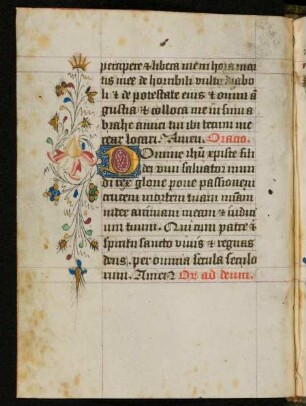 percipere & libera me in hora mor
tis mee de horribili vultu dyabo
li & de potestate eius & omni an
gustia & colloca me in sinu a
brahe amici tui ubi tecum me
rear locari. Amen. Oratio.
Domine ihu xpiste fili
dei vivi salvator mun
di rex glorie pone passionem
crucem mortem tuam
inter animam meam & iudici
um tuum. Qui cum patre &
spiritu sancto vivis & regnas
deus. per omnia secula seculo
rum. Amen Or ad deum.